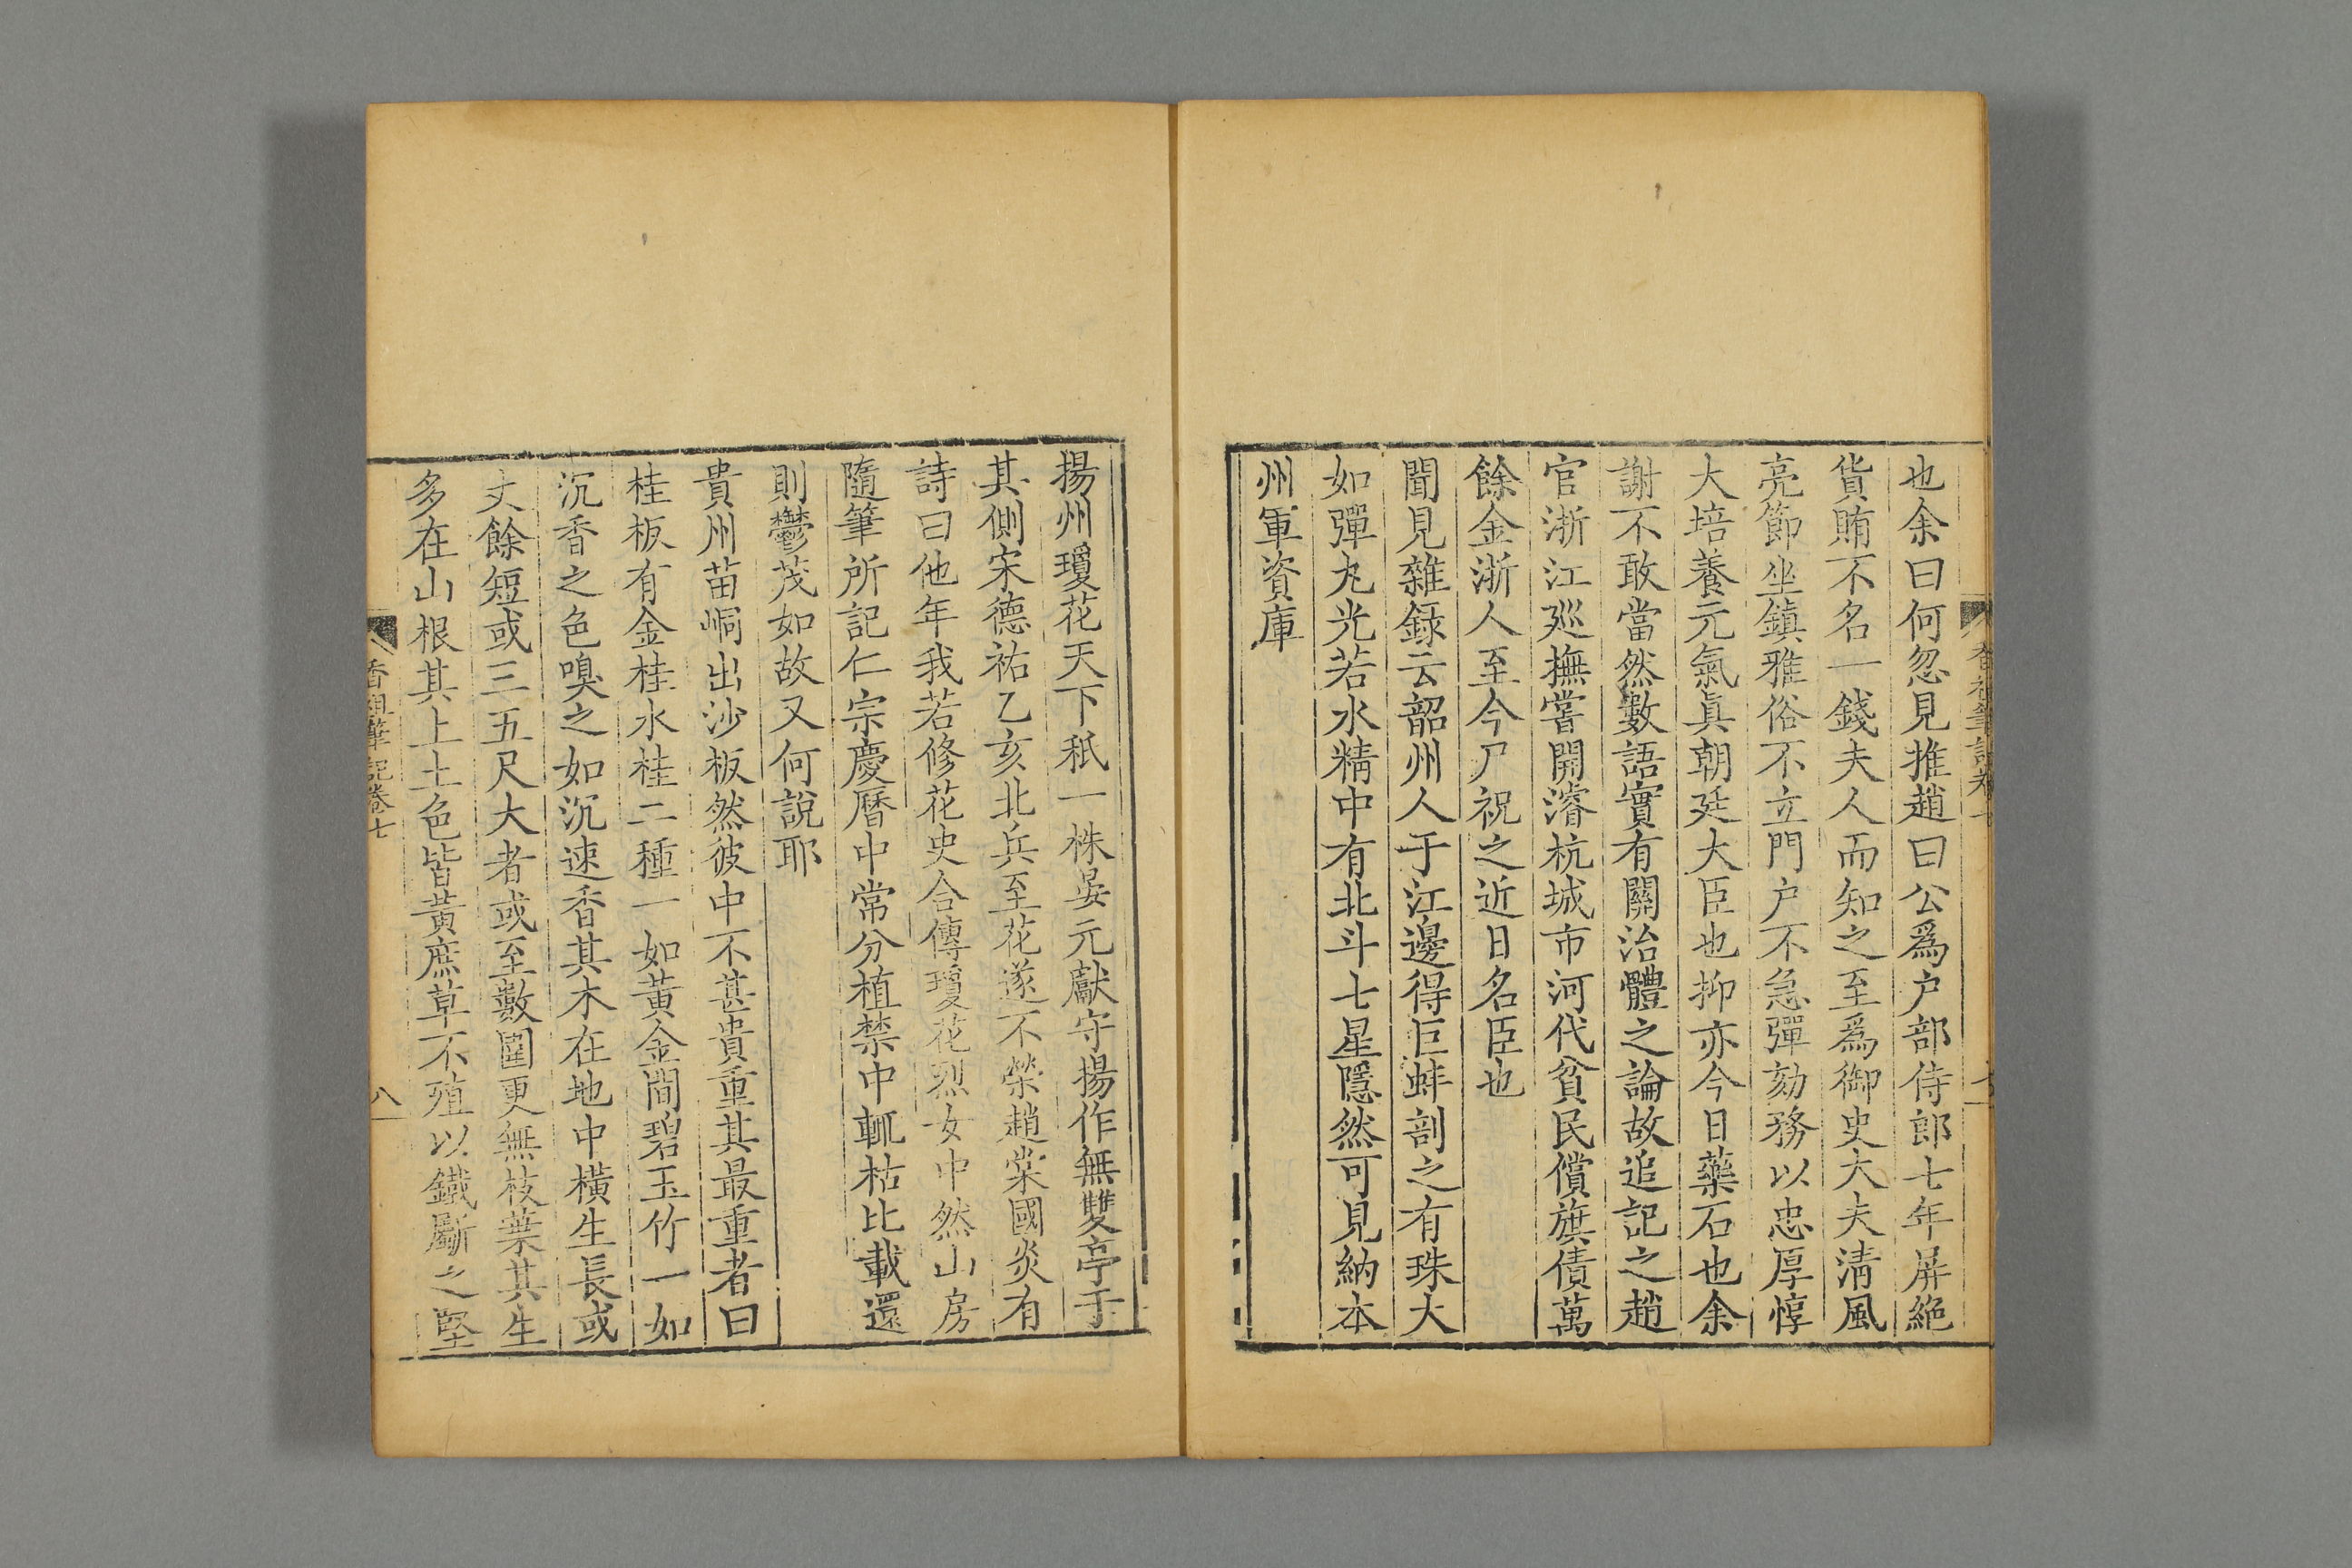 也余曰何忽見推趙曰公爲户部侍郎七年屏絶
貨賄不名一錢夫人而知之至爲御史大夫清風
亮節坐鎮雅俗不立門户不急彈劾務以忠厚惇
大培養元氣眞朝廷大臣也抑亦今日藥石也余
謝不敢當然數語實有關治體之論故追記之趙
官浙江廵撫嘗開濬杭城市河代貧民償旗債萬
餘金浙人至今尸祝之近日名臣也
聞見雜録云韶州人于江邊得巨蚌剖之有珠大
如彈丸光若水精中有北斗七星隱然可見納本
州軍資庫
揚州瓊花天下秖一株晏元獻守揚作無雙亭于
其側宋德祐乙亥北兵至花遂不榮趙棠國炎有
詩曰他年我若修花史合傳瓊花烈女中然山房
隨筆所記仁宗慶曆中常分植禁中輒枯比載還
則鬱茂如故又何說耶
貴州苗峒出沙板然彼中不甚貴重其最重者曰
桂板有金桂水桂二種一如黃金間碧玉竹一如
沉香之色嗅之如沉速香其木在地中橫生長或
丈餘短或三五尺大者或至數圍更無枝葉其生
多在山根其上土色皆黃庶草不殖以鐵斸之堅
香祖筆記卷七
八